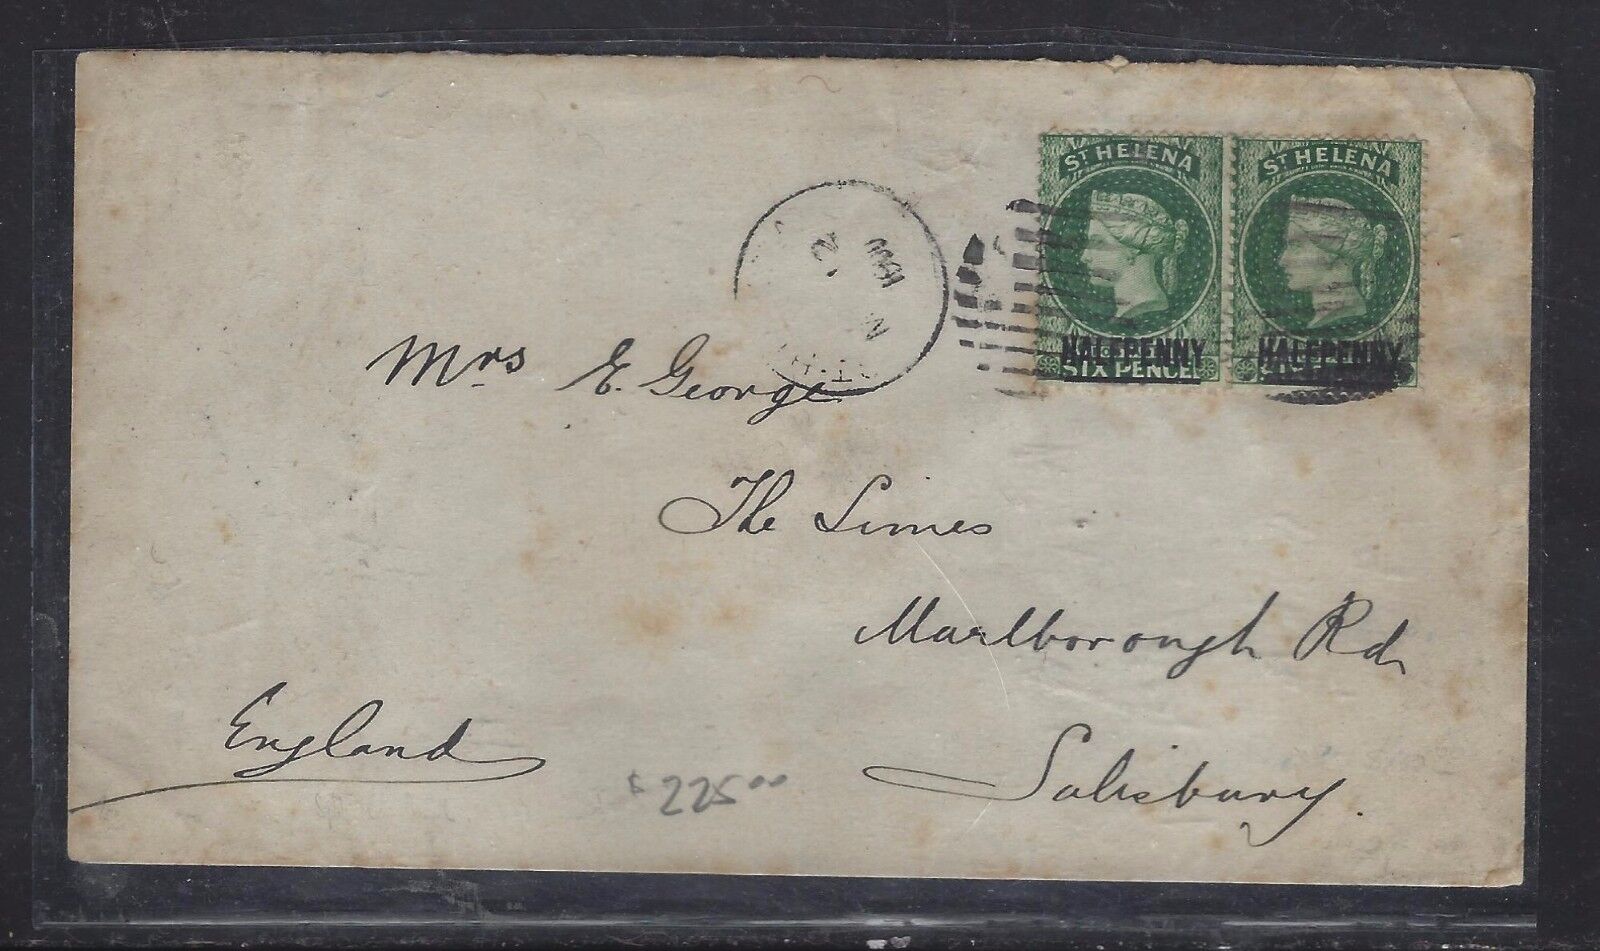 ST HELENA ST HELENA
HALFPENNY HALFPENNY
SIX PENCE
Mrs E. George
The Limes
Marlborough Rd
Salisbury.
England
$225.00